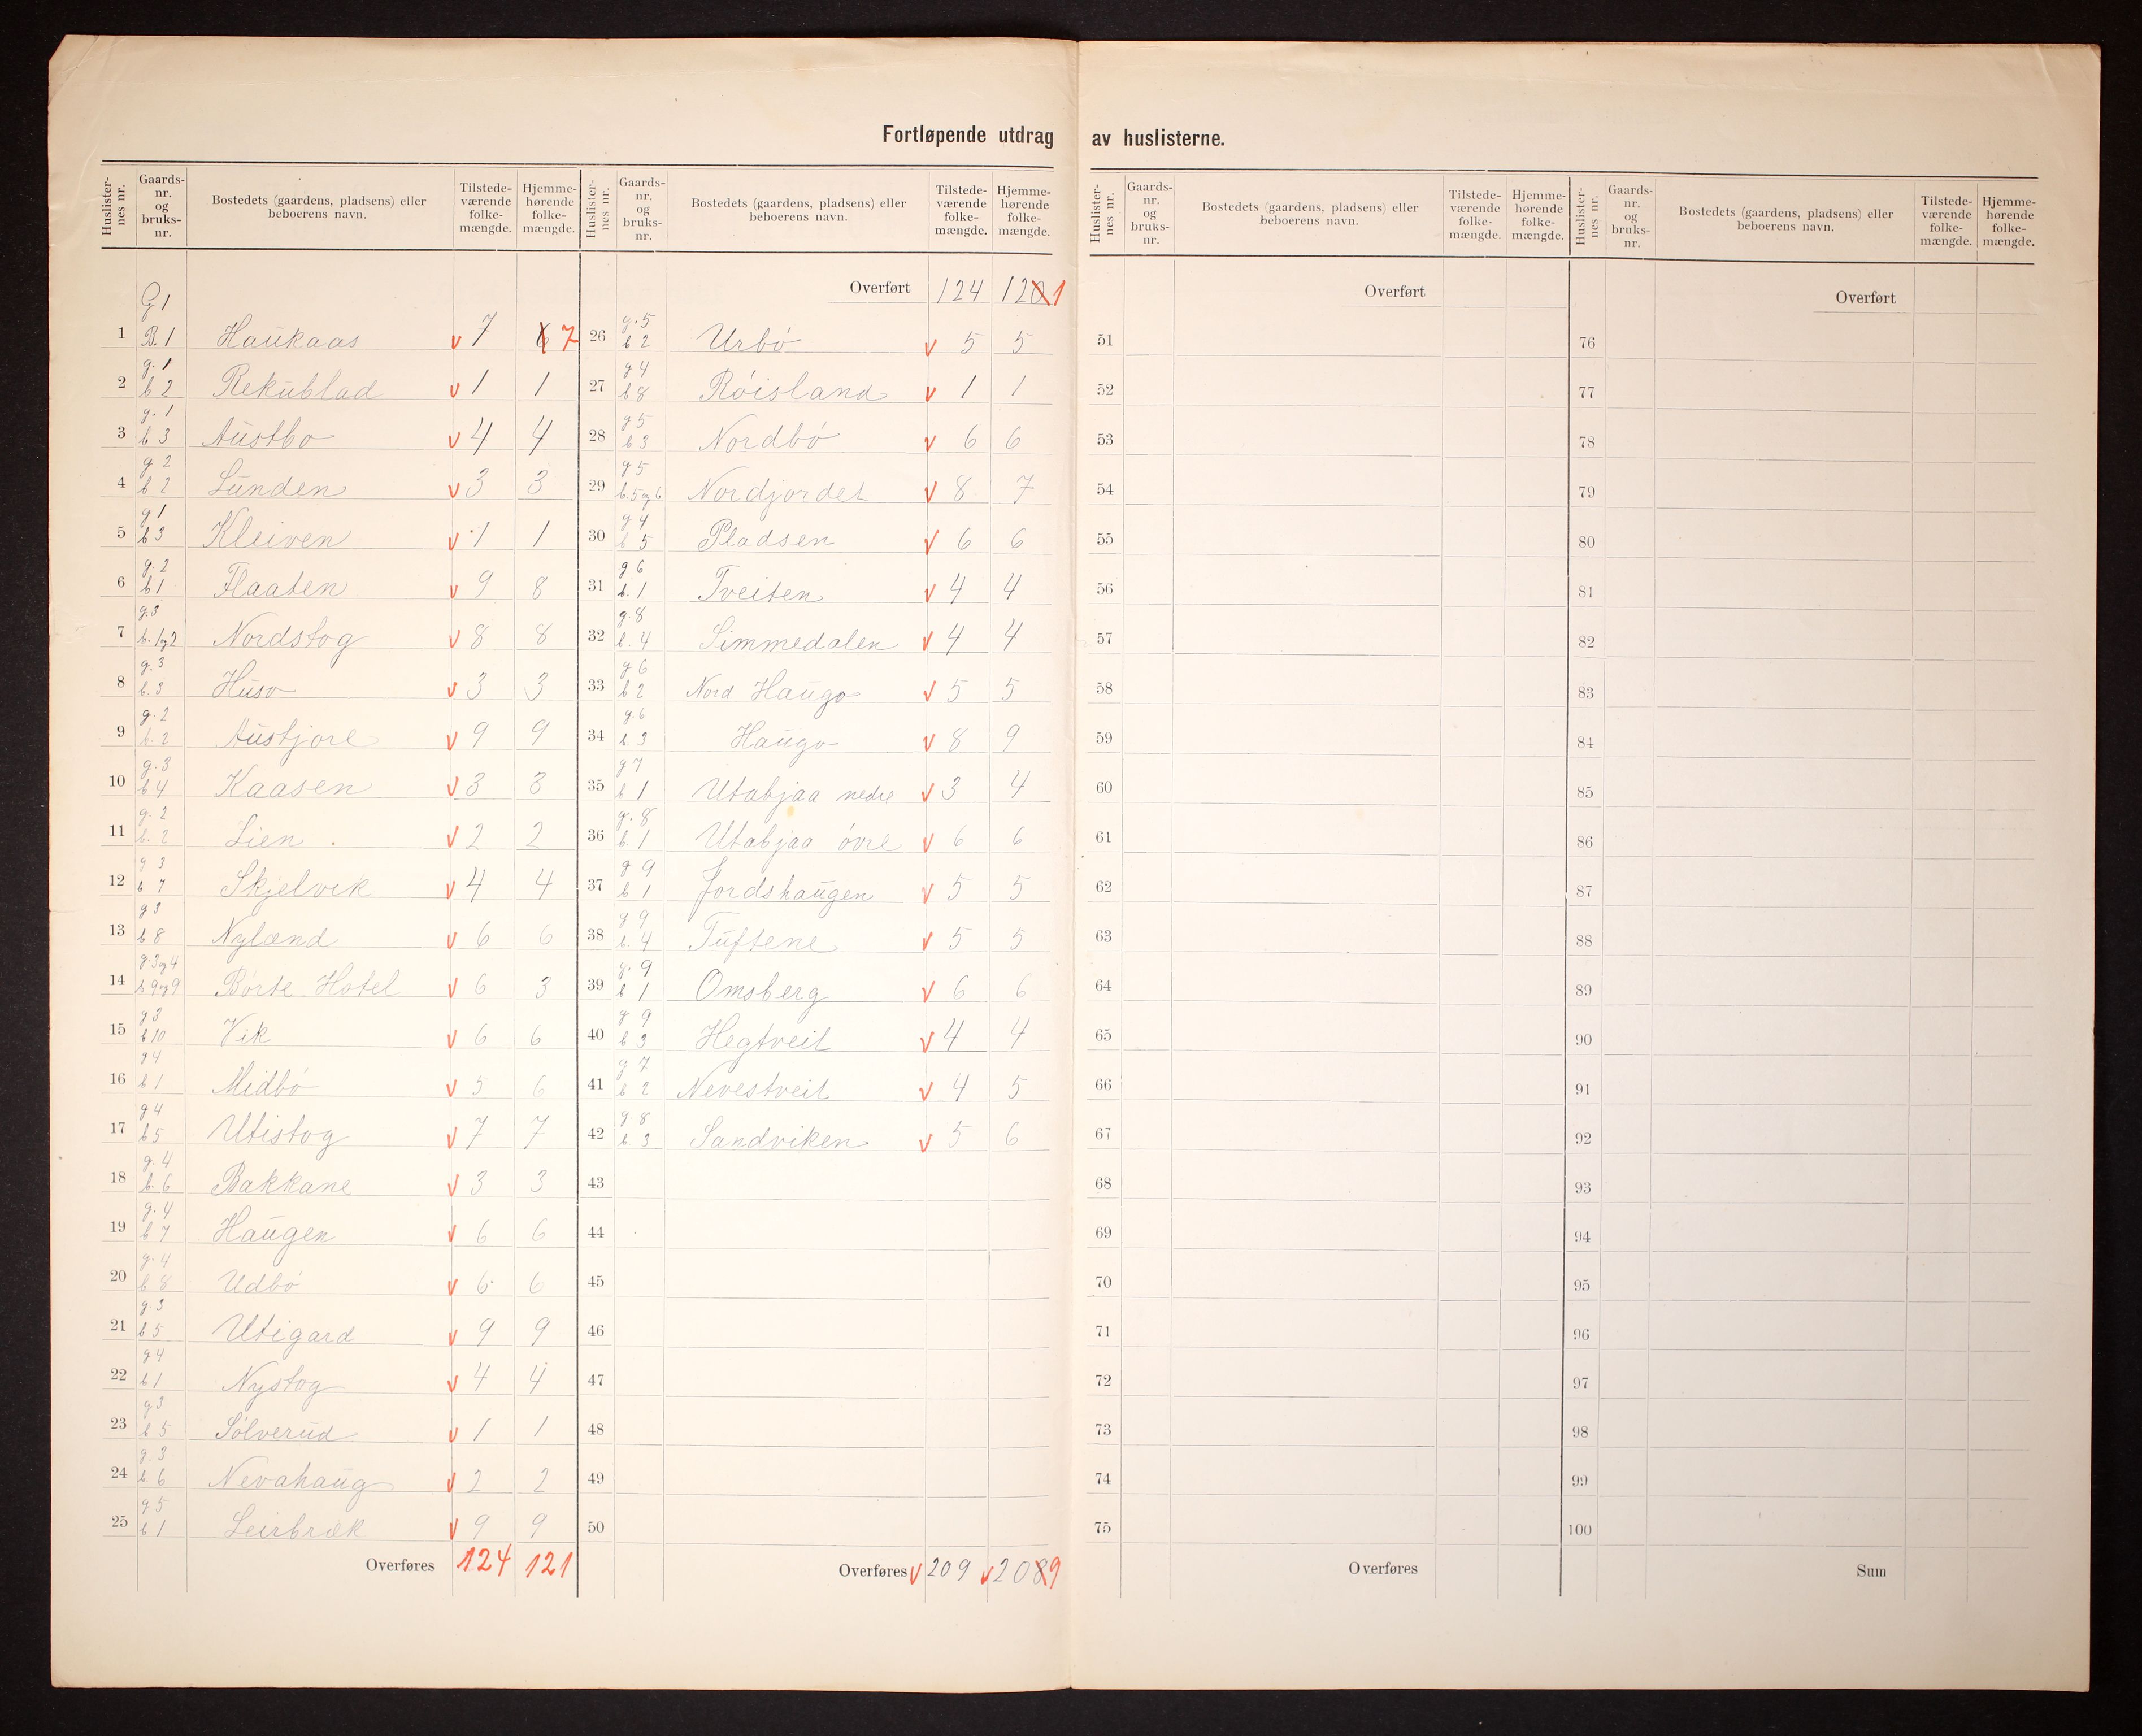 Fortløpende utdrag av huslisterne.
Huslisternes nr. Gaards-nr. og bruks-nr. Bostedets (gaardens, pladsens) eller beboerens navn. Tilstede-værende folke-mængde. Hjemme-hørende folke-mængde.
G 1
1 B. 1 Haukaas v 7 6 7
g. 1
2 b 2 Rekublad v 1 1
g. 1
3 b 3 Austbo v 4 4
g. 2
4 b 2 Lunden v 3 3
g 1
5 b 3 Kleiven v 1 1
g. 2
6 b 1 Flaaten v 9 8
g. 3
7 b. 1 og 2 Nordstog v 8 8
g. 3
8 b. 3 Huso v 3 3
g. 2
9 b. 2 Austjore v 9 9
g. 3
10 b 4 Kaasen v 3 3
g. 2
11 b. 2 Lien v 2 2
g 3
12 b 7 Skjelvik v 4 4
g 3
13 b 8 Nylænd v 6 6
g. 3 og 4
14 b 9 og 9 Börte Hotel v 6 3
g 3
15 b 10 Vik v 6 6
g 4
16 b 1 Midbö v 5 6
g 4
17 b 5 Utistog v 7 7
g. 4
18 b. 6 Bakkane v 3 3
g. 4
19 b 7 Haugen v 6 6
g. 4
20 b 8 Udbö v 6 6
g. 3
21 b 5 Utigard v 9 9
g 4
22 b 1 Nystog v 4 4
g 3
23 b 5 Sölverud v 1 1
g. 3
24 b. 6 Nevahaug v 2 2
g 5
25 b 1 Leirbræk v 9 9
Overføres 124 121
Huslisternes nr. Gaards-nr. og bruks-nr. Bostedets (gaardens, pladsens) eller beboerens navn. Tilstede-værende folke-mængde. Hjemme-hørende folke-mængde.
Overført 124 120 1
g. 5
26 b 2 Urbö v 5 5
g 4
27 b 8 Röisland v 1 1
g 5
28 b 3 Nordbö v 6 6
g 5
29 b. 5 og 6 Nordjordet v 8 7
g 4
30 b 5 Pladsen v 6 6
g 6
31 b. 1 Tveiten v 4 4
g. 8
32 b. 4 Simmedalen v 4 4
g 6
33 b 2 Nord Haugo v 5 5
g. 6
34 b. 3 Haugo v 8 9
g 7
35 b 1 Utabjaa nedre v 3 4
g. 8
36 b. 1 Utabjaa övre v 6 6
g 9
37 b 1 Jordshaugen v 5 5
g 9
38 b. 4 Tuftene v 5 5
g. 9
39 b 1 Omsberg v 6 6
g 9
40 b 3 Hegtveit v 4 4
g 7
41 b 2 Nevestveit v 4 5
g. 8
42 b. 3 Sandviken v 5 6
43
44
45
46
47
48
49
50
Overføres v 209 v 208 9
Huslisternes nr. Gaards-nr. og bruks-nr. Bostedets (gaardens, pladsens) eller beboerens navn. Tilstede-værende folke-mængde. Hjemme-hørende folke-mængde.
Overført
51
52
53
54
55
56
57
58
59
60
61
62
63
64
65
66
67
68
69
70
71
72
73
74
75
Overføres
Huslisternes nr. Gaards-nr. og bruks-nr. Bostedets (gaardens, pladsens) eller beboerens navn. Tilstede-værende folke-mængde. Hjemme-hørende folke-mængde.
Overført
76
77
78
79
80
81
82
83
84
85
86
87
88
89
90
91
92
93
94
95
96
97
98
99
100
Sum